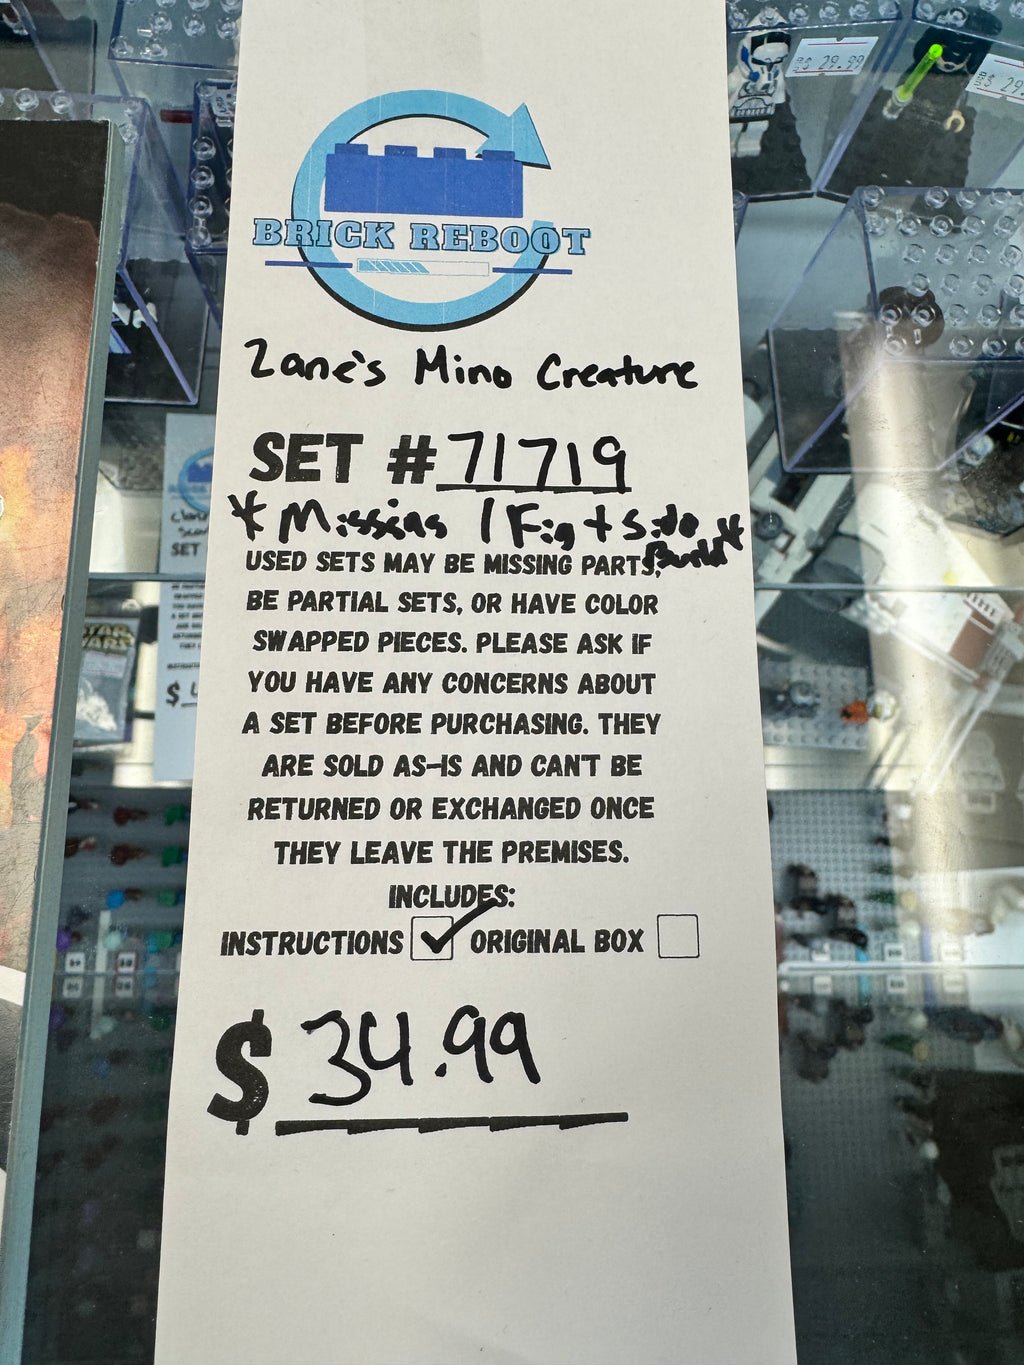 29.99
29.
BRICK REBOOT
Zane's Mino Creature
SET # 71719
* Missing 1 Fig + Side Build *
USED SETS MAY BE MISSING PARTS,
BE PARTIAL SETS, OR HAVE COLOR
SWAPPED PIECES. PLEASE ASK IF
YOU HAVE ANY CONCERNS ABOUT
A SET BEFORE PURCHASING. THEY
ARE SOLD AS-IS AND CAN'T BE
RETURNED OR EXCHANGED ONCE
THEY LEAVE THE PREMISES.
INCLUDES:
INSTRUCTIONS ORIGINAL BOX
$ 34.99
SET
STAR
WARS
$